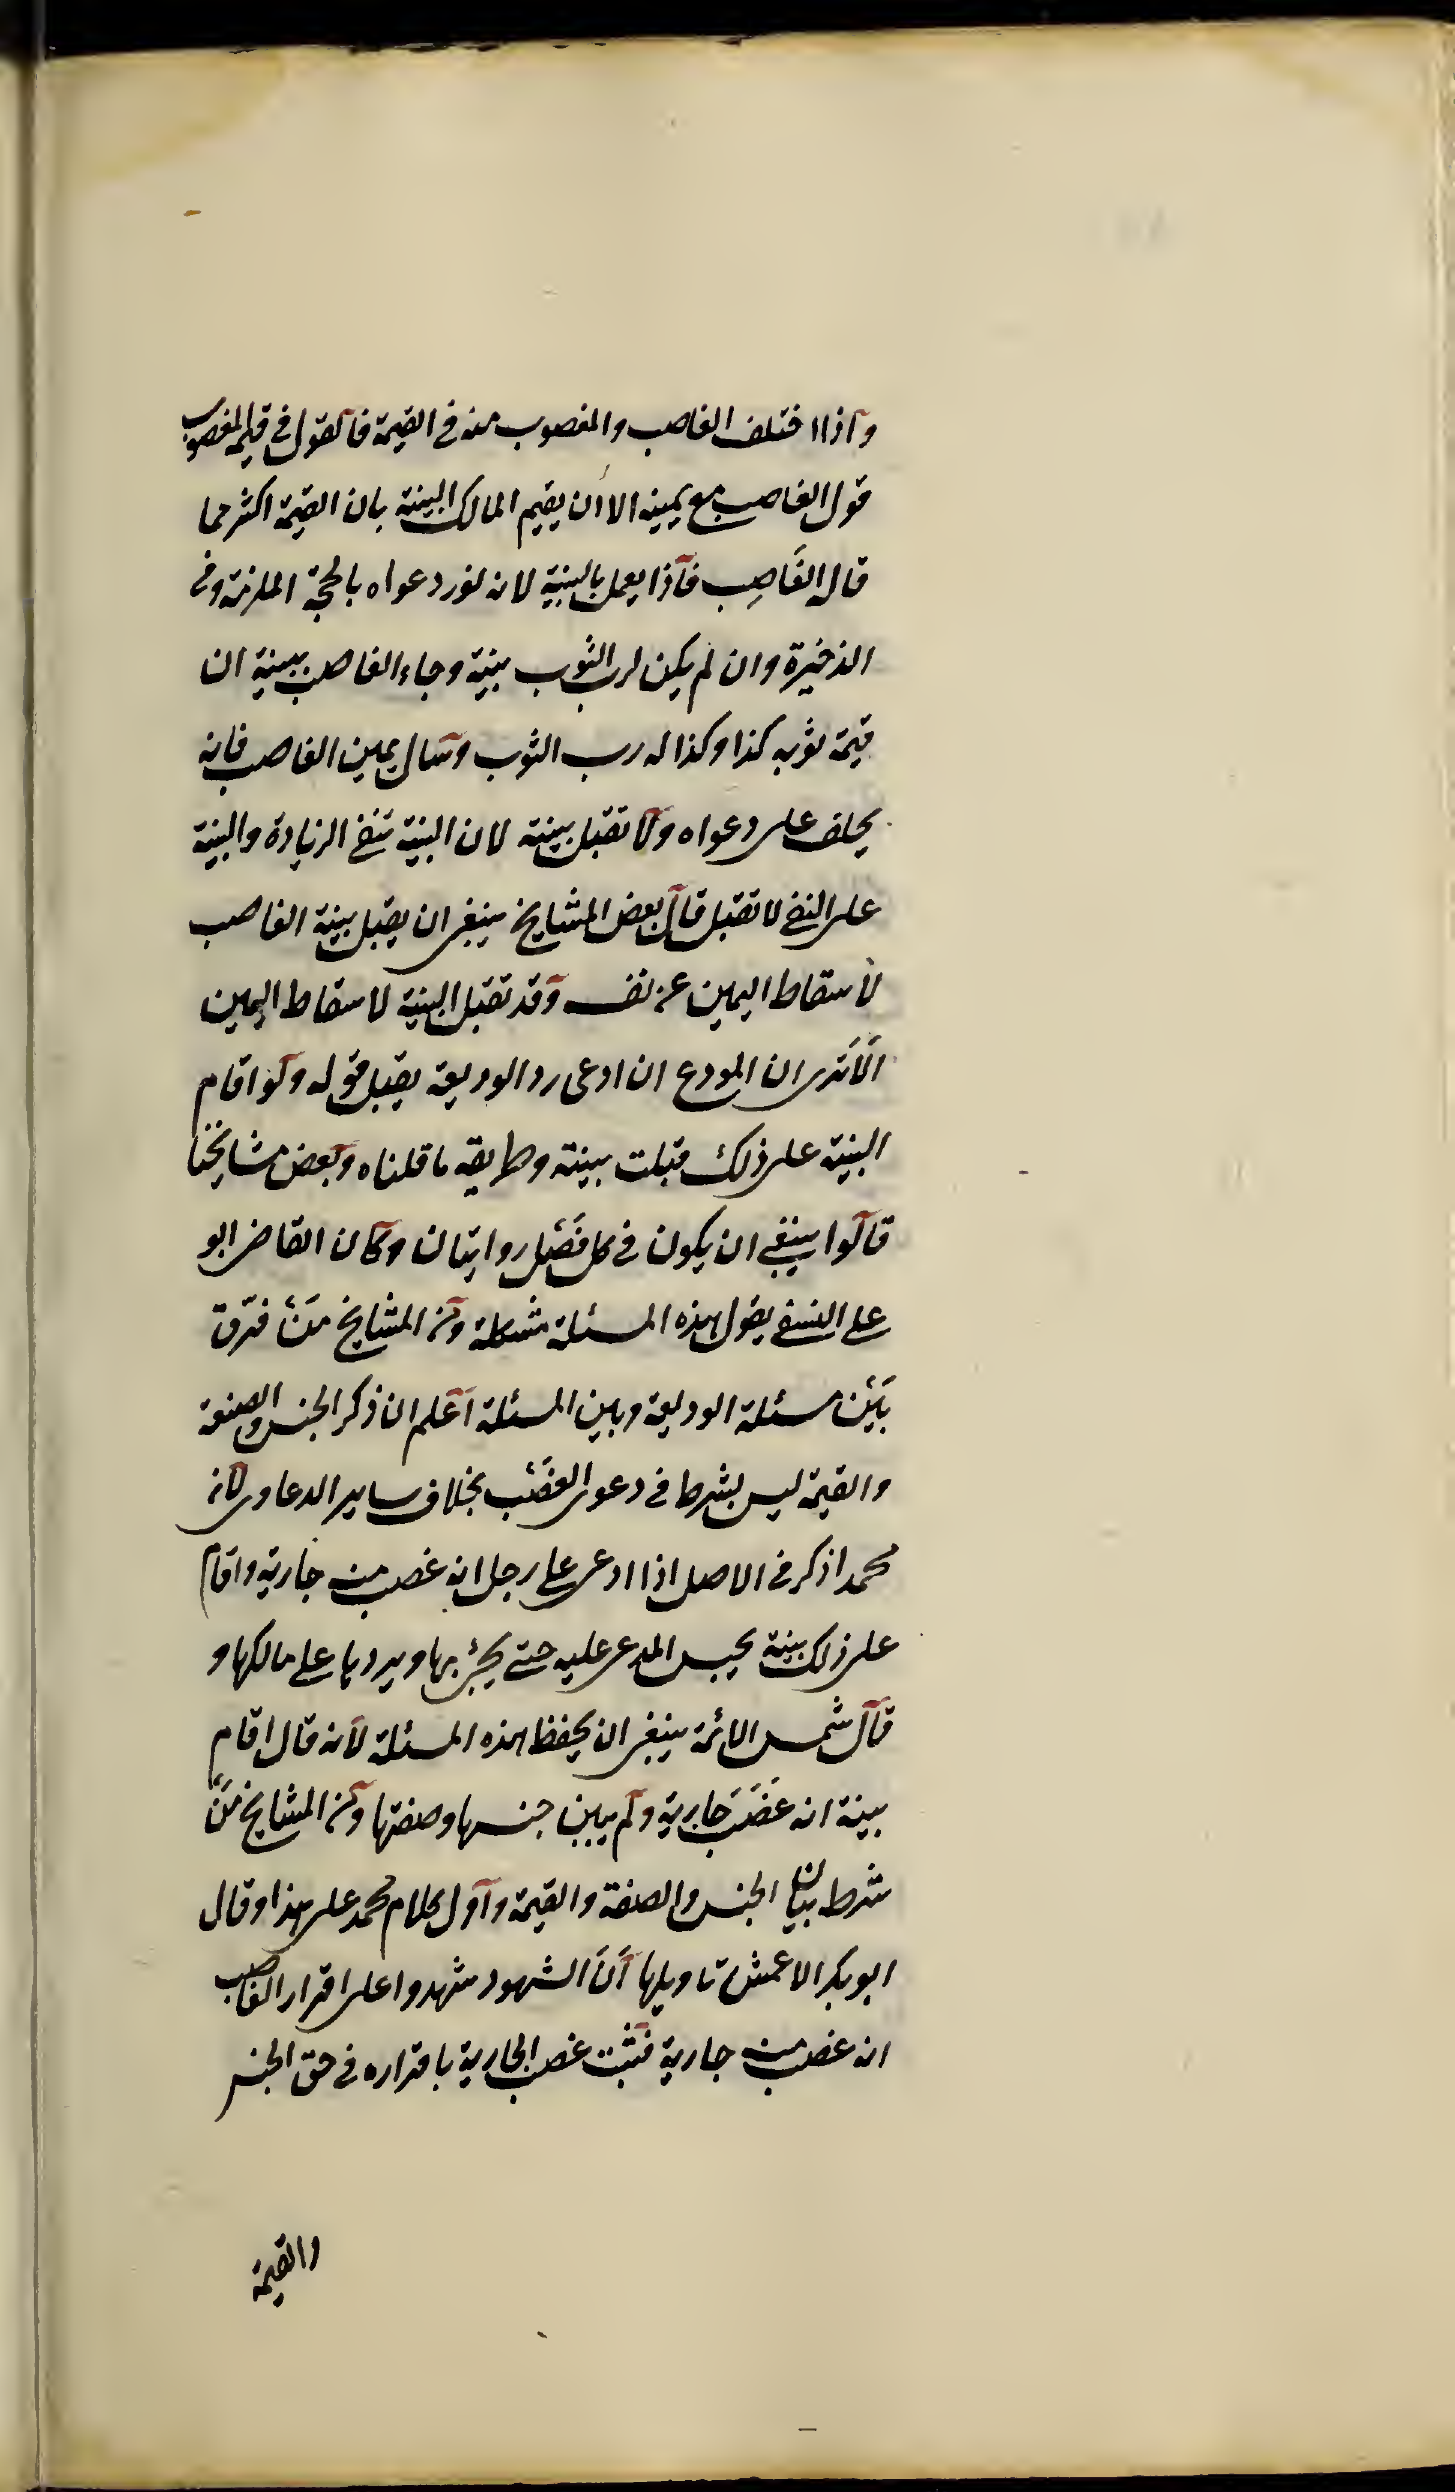 واذا اختلف الغاصب والمغصوب منه في القيمة فالقول في قيمة المغصوب
قول الغاصب مع يمينه الا ان يقيم المالك البينة بان القيمة اكثر مما
قال الغَاصِب فاذا يعمل بالبينة لانه نور دعواه بالحجة الملزمة وفي
الذخيرة وان لم يكن لرب الثوب بينة وجاء الغاصب ببينة ان
قيمة ثوبه كذا وكذا له رب الثوب وسال يمين الغاصب فانه
يحلف على دعواه ولا تقبل بينته لان البينة تنفي الزيادة والبينة
على النفي لا تقبل قال بعض المشايخ ينبغي ان يقبل بينة الغاصب
لأسقاط اليمين عن نفسه وقد تقبل البينة لاسقاط اليمين
الَاتَرى ان المودع ان ادعى رد الوديعة يقبل قوله ولو اقام
البينة على ذلك قبلت بينته وطريقه ما قلناه وبعض مشايخنا
قالوا ينبغي ان يكون في كل فَصْل روايتان وكان القاضي ابو
علي النسفي يقول هذه المسئلة مشكلة ومن المشايخ مَنْ فرّق
بَيْن مسئلة الوديعة وبين المسئلة اعلم ان ذكر الجنس والصفة
والقيمة ليس بشرط في دعوى الغَصْب بخلاف ساير الدعاوى لانه
محمدا ذكر في الاصل اذا ادعى على رجل انه غصب منه جارية واقام
على ذلك بينة يحبس المدعى عليه حتى يجئ بها ويردها على مالكها و
قال شمس الائمة ينبغي ان يحفظ هذه المسئلة لانه قال اقام
بينة انه غَصَبَ جارية ولم يبين جنسها وصفتها ومن المشايخ مَنْ
شرط بيان الجنس والصفة والقيمة واول كلام محمد على هذا وقال
ابو بكر الاعمش تاويلها اَنَّ الشهود شهدوا على اقرار الغاصب
انه غصب منه جارية فثبت غصب الجارية باقراره في حق الجنس
والقيمة